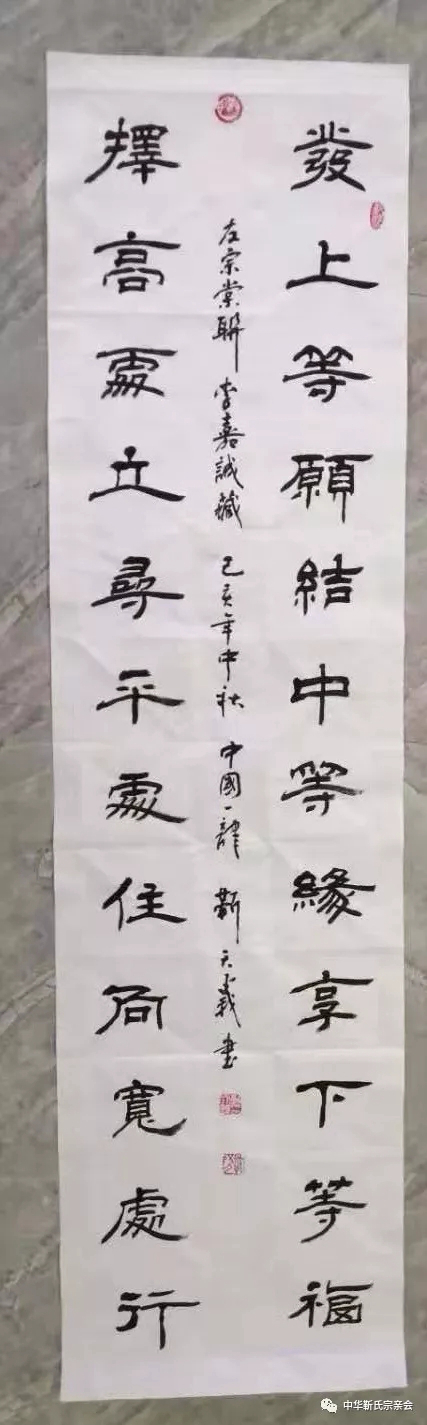 發上等願結中等緣享下等福
左宗棠聯 李嘉誠藏 己亥年中秋 中國一隸 靳天義書
擇高處立尋平處住向寬處行
中华靳氏宗亲会